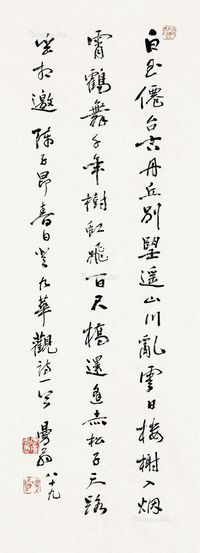 白玉仙台古丹丘别望遥山川乱云日楼榭入烟
霄鹤舞千年树虹飞百尺桥还逢赤松子天路
坐相邀 陈子昂春日登九华观诗一首 曼翁 八十九